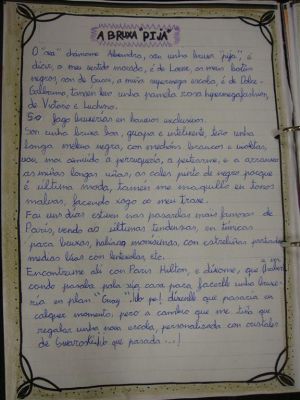 A BRUXA PIJA
O "sea" chámome Alexandra, son unha bruxa "pija", é
dicir, o meu vestido morado, é de Loewe, os meus botíns
negros, son de Gucci, a miña supermega escoba, é de Dolce-
Gabbana, tamén levo unha pamela rosa hipermegafashion,
de Vitorio e Luchino.
Só fago bruxerías en baneios exclusivos.
Son unha bruxa boa, guapa e intelixente, teño unha
longa melena negra, con medións brancos e violetas,
vou moi amiúdo á perruquería, a peitearme, e a arranxar
as miñas longas uñas, as cales pinto de negro porque
é última moda, tamén me maquillo en tonos
malvas, facendo xogo co meu traxe.
Fai uns días estiven nas pasarelas máis famosas de
París, vendo as últimas tendenzas, en túnicas
para bruxas, habías monísimas, con estreliñas prateadas
medias lúas con lentexolas etc.
Encontreime alí con Paris Hilton, e díxome, que
cando pasaba pola súa casa para facerlle unha bruxe-
ría en plan "Guay". pe! díxenlle que pasaría en
calquer momento, pero a cambio que me tiña que
regalar unha nova escoba, personalizada con cristales
de Swaroskybb que pasada...!